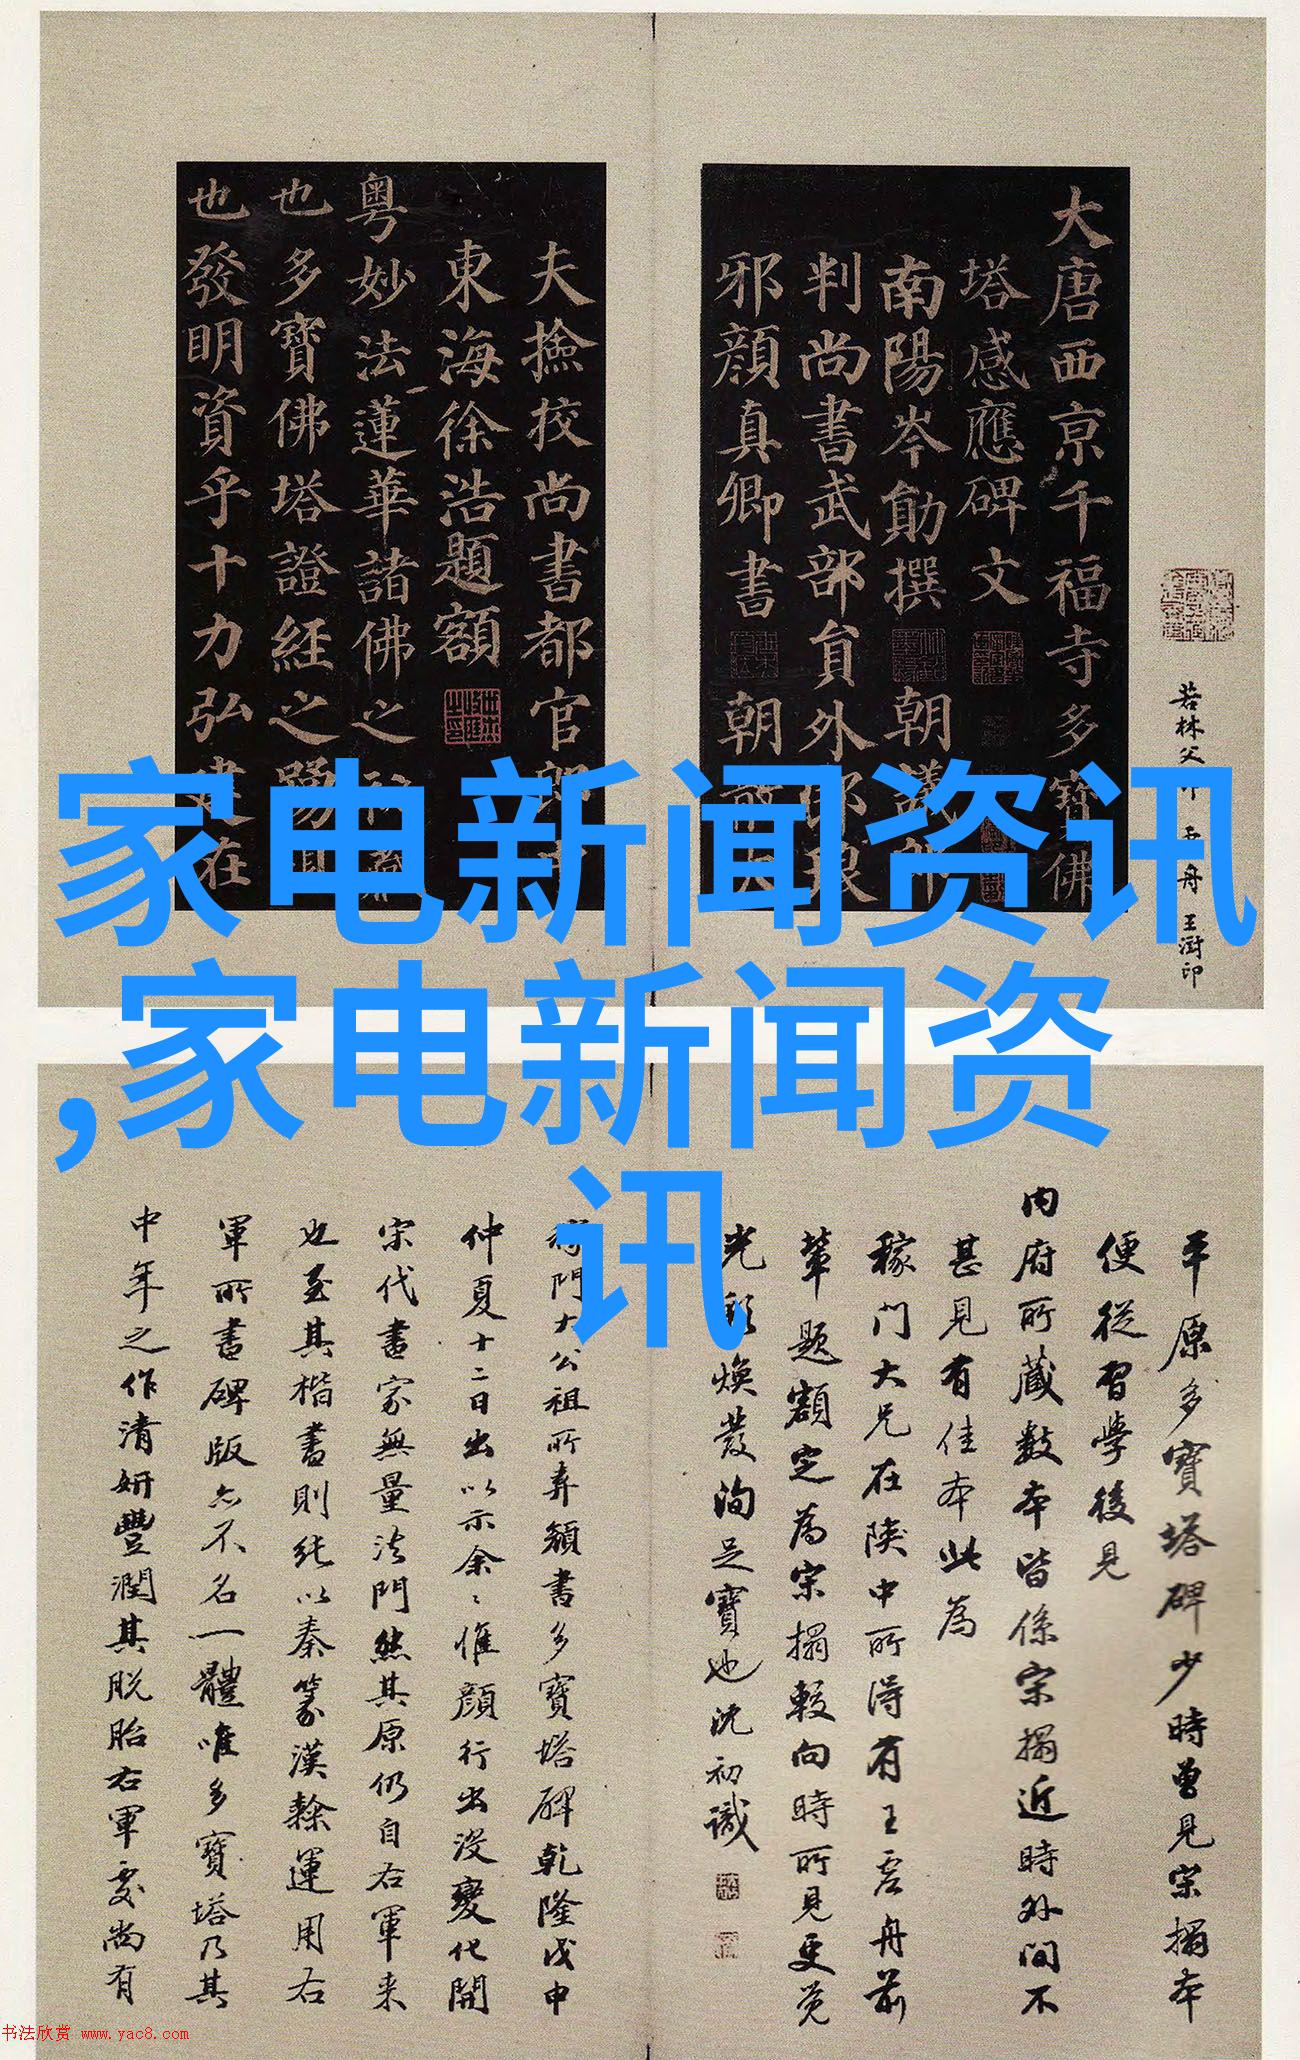 大唐西京千福寺多寶佛
塔感應碑文
南陽岑勛撰 朝議郎
判尚書武部員外郎琅
邪顏真卿書 朝散大
夫撿挍尚書都官郎中
東海徐浩題額
粵妙法蓮華諸佛之秘藏
也多寶佛塔證經之踴現
也發明資乎十力弘建在
若林父 虛舟 王澍印
家电新闻资讯
,家电新闻资
讯
平原多寶塔碑少時曾見宋搨本
便從習學後見
內府所藏數本皆係宋搨近時外間不
甚見有佳本此為
稼门大兄在陝中所得有王虛舟前
輩題額定為宋搨較向時所見更覚
光彩煥發洵足寶也沈初識
稼門大公祖所弆顏書多寶塔碑乾隆戊申
仲夏十二日出以示余〻惟顏行出没變化開
宋代書家無量法門然其原仍自右軍来
也至其楷書則純以秦篆漢隸運用右
軍所書碑版亦不名一體唯多寶塔乃其
中年之作清妍豐潤其脫胎右軍處尚有
书法欣赏 www.yac8.com